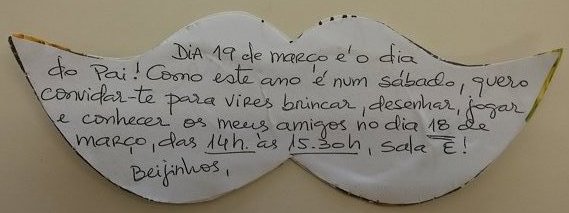 DiA 19 de março é o dia
do Pai! Como este ano é num sábado, quero
convidar-te para vires brincar, desenhar, jogar
e conhecer os meus amigos no dia 18 de
março, das 14h. às 15.30h, sala E!
Beijinhos,